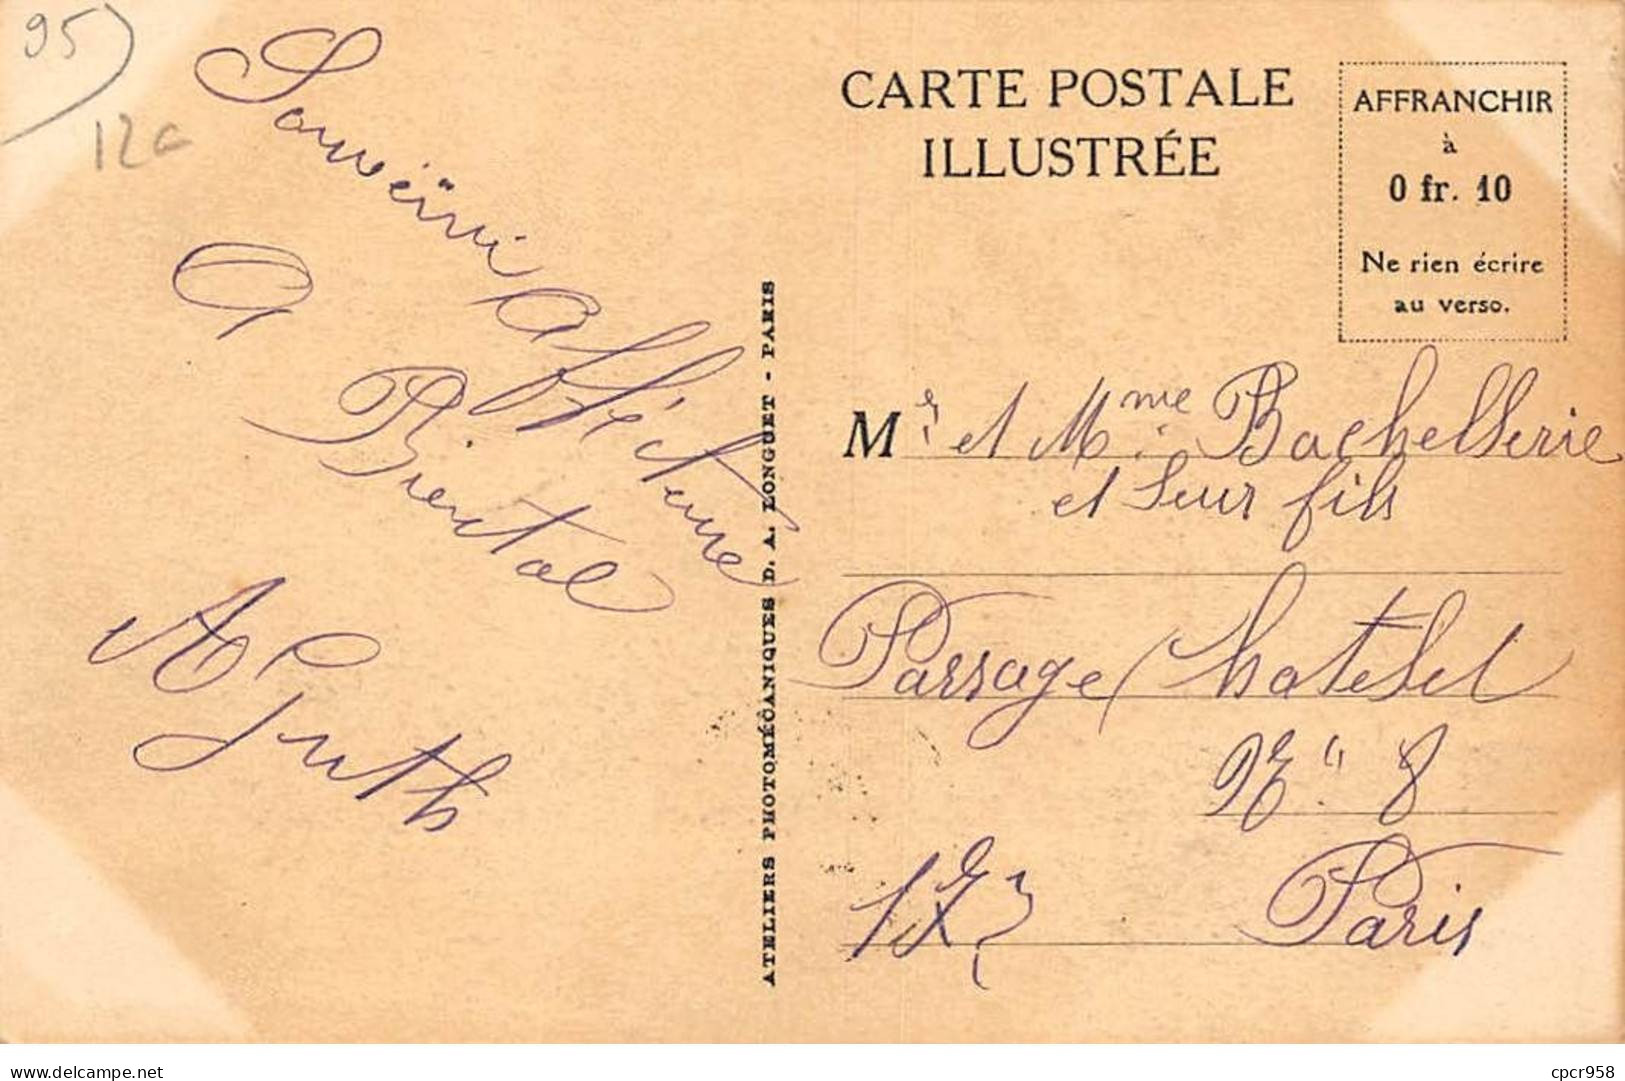 95)
12c
Souvenir Affectueux
A Bientot
A Guth
ATELIERS PHOTOMÉCANIQUES D. A. LONGUET - PARIS
CARTE POSTALE
ILLUSTRÉE
AFFRANCHIR
à
0 fr. 10
Ne rien écrire
au verso.
Mr et Mme Bachellerie
et leur fils
Passage Chatelet
No 8
17e
Paris
delcampe.net
cpcr958